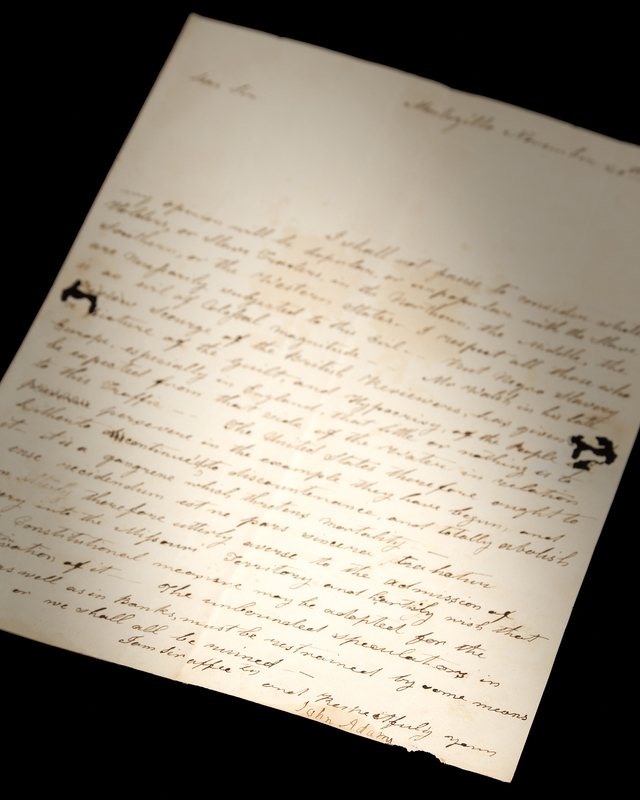 Dear Sir
Montezillo November 20th
I shall not pause to consider whether
opinion will be popular or unpopular with the Slave
Holders, or Slave Traders, in the Northern, the Middle, the
Southern, or the Western, States — I respect all those who
are necessarily subjected to this Evil — But Negro Slavery
is an evil of Colossal magnitude — Mr Walsh in his late
scourge of the British Reviewers, has given
Picture of the guilt and Hypocrisy of the People
Europe, especially in England, that little or nothing is to
be expected from that side of the Water, in relation
to this Traffic — The United States therefore ought to
persevere in the example they have begun, and
hitherto continued to discountenance and totally abolish
it. It is a gangrene which threatens mortality —
ense recidendum est ne pars sincera trahatur
therefore utterly averse to the admission of
into the Missouri Territory and heartily wish that
Constitutional measure may be adopted for the
of it — The unbounded speculations in
as well as in banks, must be restrained by some means
or we shall all be ruined —
I am Sir and Respectfully yours
John Adams